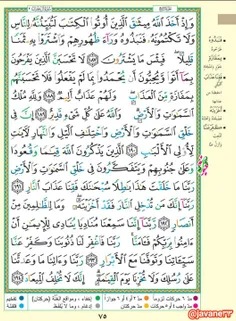 وَإِذْ أَخَذَ اللَّهُ مِيثَٰقَ الَّذِينَ أُوتُوا الْكِتَٰبَ لَتُبَيِّنُنَّهُ لِلنَّاسِ
وَلَا تَكْتُمُونَهُ فَنَبَذُوهُ وَرَاءَ ظُهُورِهِمْ وَاشْتَرَوْا بِهِ ثَمَنًا
قَلِيلًا فَبِئْسَ مَا يَشْتَرُونَ ١٨٧ لَا تَحْسَبَنَّ الَّذِينَ يَفْرَحُونَ
بِمَا أَتَوْا وَيُحِبُّونَ أَنْ يُحْمَدُوا بِمَا لَمْ يَفْعَلُوا فَلَا تَحْسَبَنَّهُمْ
بِمَفَازَةٍ مِنَ الْعَذَابِ وَلَهُمْ عَذَابٌ أَلِيمٌ ١٨٨ وَلِلَّهِ مُلْكُ
السَّمَٰوَٰتِ وَالْأَرْضِ وَاللَّهُ عَلَىٰ كُلِّ شَيْءٍ قَدِيرٌ ١٨٩ إِنَّ فِي خَلْقِ
السَّمَٰوَٰتِ وَالْأَرْضِ وَاخْتِلَٰفِ الَّيْلِ وَالنَّهَارِ لَآيَٰتٍ
لِأُولِي الْأَلْبَٰبِ ١٩٠ الَّذِينَ يَذْكُرُونَ اللَّهَ قِيَٰمًا وَقُعُودًا
وَعَلَىٰ جُنُوبِهِمْ وَيَتَفَكَّرُونَ فِي خَلْقِ السَّمَٰوَٰتِ وَالْأَرْضِ
رَبَّنَا مَا خَلَقْتَ هَٰذَا بَٰطِلًا سُبْحَٰنَكَ فَقِنَا عَذَابَ النَّارِ
١٩١ رَبَّنَا إِنَّكَ مَنْ تُدْخِلِ النَّارَ فَقَدْ أَخْزَيْتَهُ وَمَا لِلظَّٰلِمِينَ مِنْ
أَنْصَارٍ ١٩٢ رَبَّنَا إِنَّنَا سَمِعْنَا مُنَادِيًا يُنَادِي لِلْإِيمَٰنِ أَنْ
ءَامِنُوا بِرَبِّكُمْ فَـَٔامَنَّا رَبَّنَا فَاغْفِرْ لَنَا ذُنُوبَنَا وَكَفِّرْ عَنَّا
سَيِّـَٔاتِنَا وَتَوَفَّنَا مَعَ الْأَبْرَارِ ١٩٣ رَبَّنَا وَءَاتِنَا مَا وَعَدتَّنَا
عَلَىٰ رُسُلِكَ وَلَا تُخْزِنَا يَوْمَ الْقِيَٰمَةِ إِنَّكَ لَا تُخْلِفُ الْمِيعَادَ ١٩٤
٧٥
@javanerr